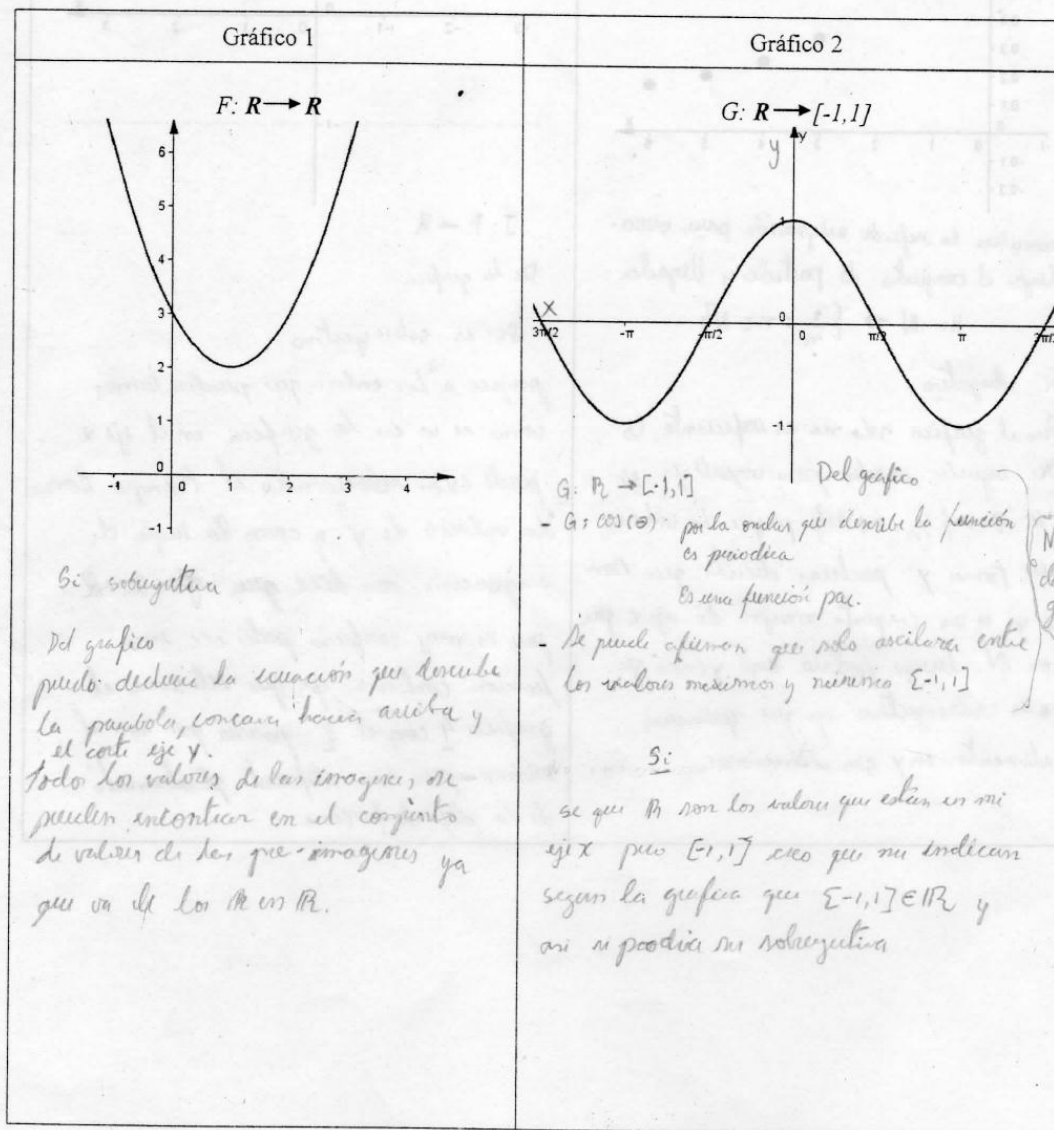 Gráfico 1
F: R → R
6
5
4
3
2
1
0
-1
-1 0 1 2 3 4
Si sobreyetiva
Del grafico
puedo deducir la ecuación que describe
la parabola, concava hacia arriba y
el corte eje y.
todos los valores de las imagenes, se
pueden encontrar en el conjunto
de valores de las pre-imagenes ya
que va de los R en R.
Gráfico 2
G: R → [-1,1]
y
y
1
X
0
3π/2 -π -π/2 π/2 π
-1
Del grafico
G: R → [-1,1]
- G: cos(θ) por la ondas que describe la función
es periodica
Es una función par.
- Se puede afirmar que solo oscilara entre
los valores máximos y mínimo [-1,1]
Si
se que R son los valores que están en mi
eje x pero [-1,1] creo que me indican
segun la grafica que [-1,1] ∈ R y
asi si podria ser sobreyetiva